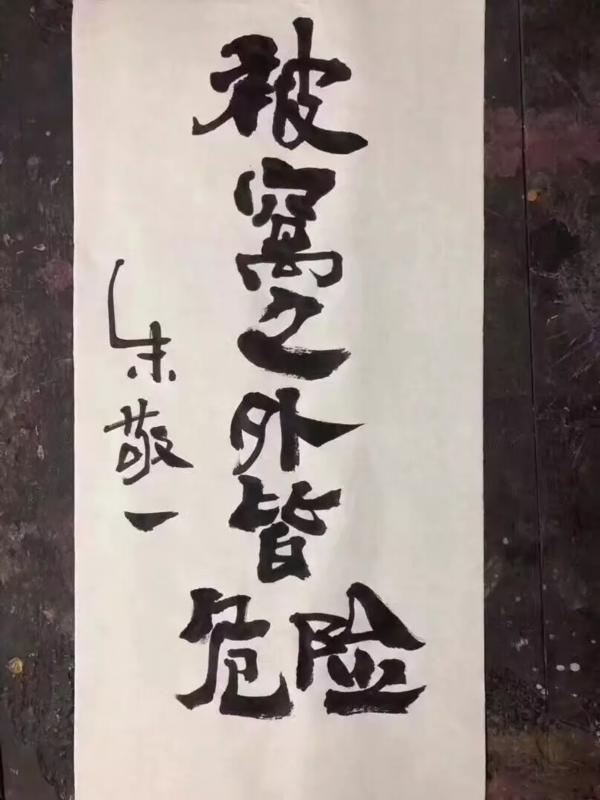 被窝之外皆
危险
朱敬一